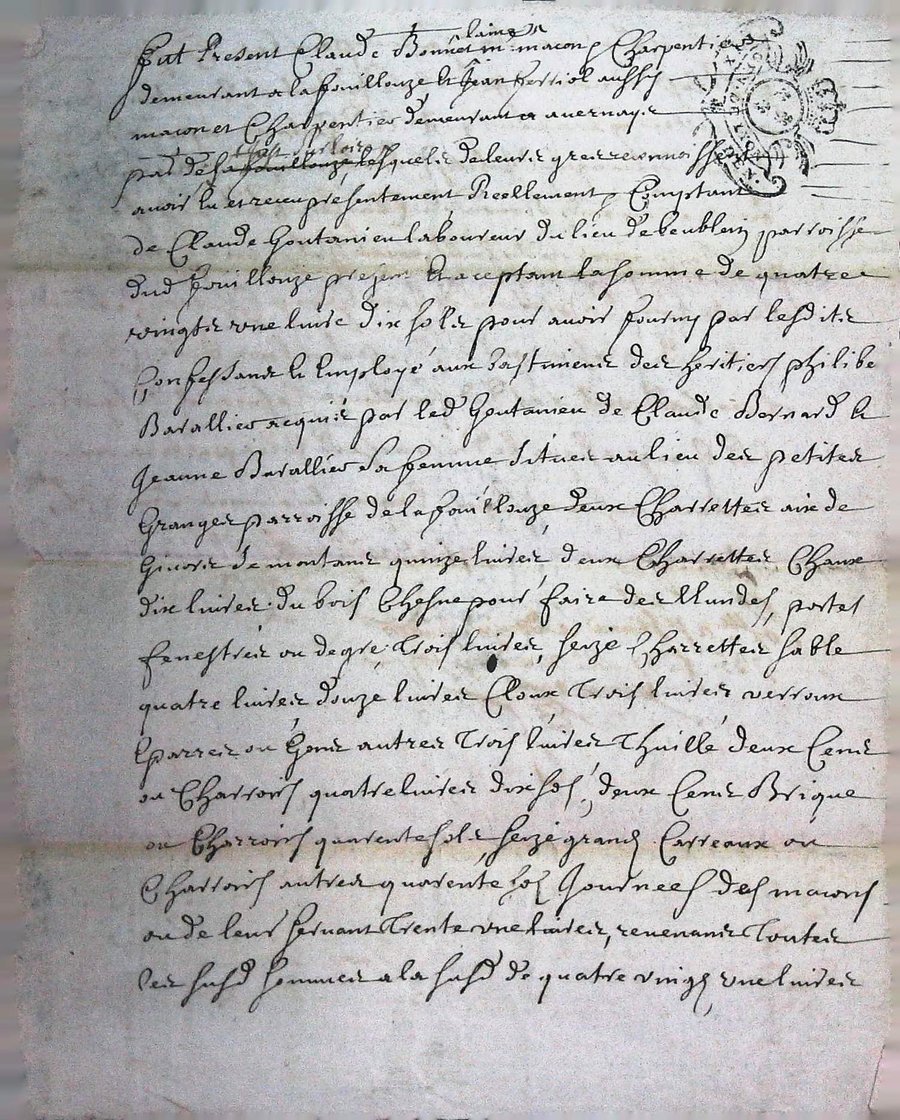 fut Present Claude Bonnet m. macon Charpentier
demeurant a la fouillouze et Jean ferriol aussy
macon et Charpentier demeurant a avernays
par de la fouillouze lesquels de leurs gres reconnoissent
avoir hu et receu presentement Reellement Comptant
de Claude Goutanieu laboureur du lieu de parroisse
dud fouillouze present Et aceptant la somme de quatre
vingts une livre dix sols pour avoir fourny par lesdits
Confessans Et Employé aux bastimens des heritiers philibe
Barallier acquis par led Goutanieu de Claude Bernard Et
Jeanne Barallier sa femme situes au lieu des petites
Granges parroisse de la fouillouze deux Charrettes aix de
Givors de montans quinze livres deux Charrettes Chaux
dix livres du bois Chesne pour faire des portes
fenestres ou degre Trois livres, seize Charrettes sable
quatre livres douze livres Cloux Trois livres verroux
Eparres ou Gons autres Trois livres Thuille deux Cens
ou Charrois quatre livres dix sols, deux Cens Brique
ou Charrois quarente sols seize grands Carreaux ou
Charrois autres quarente sols Journees des macons
ou de leur servant Trente une livres, revenans Toutes
les susd sommes a la susd de quatre vingts une livres